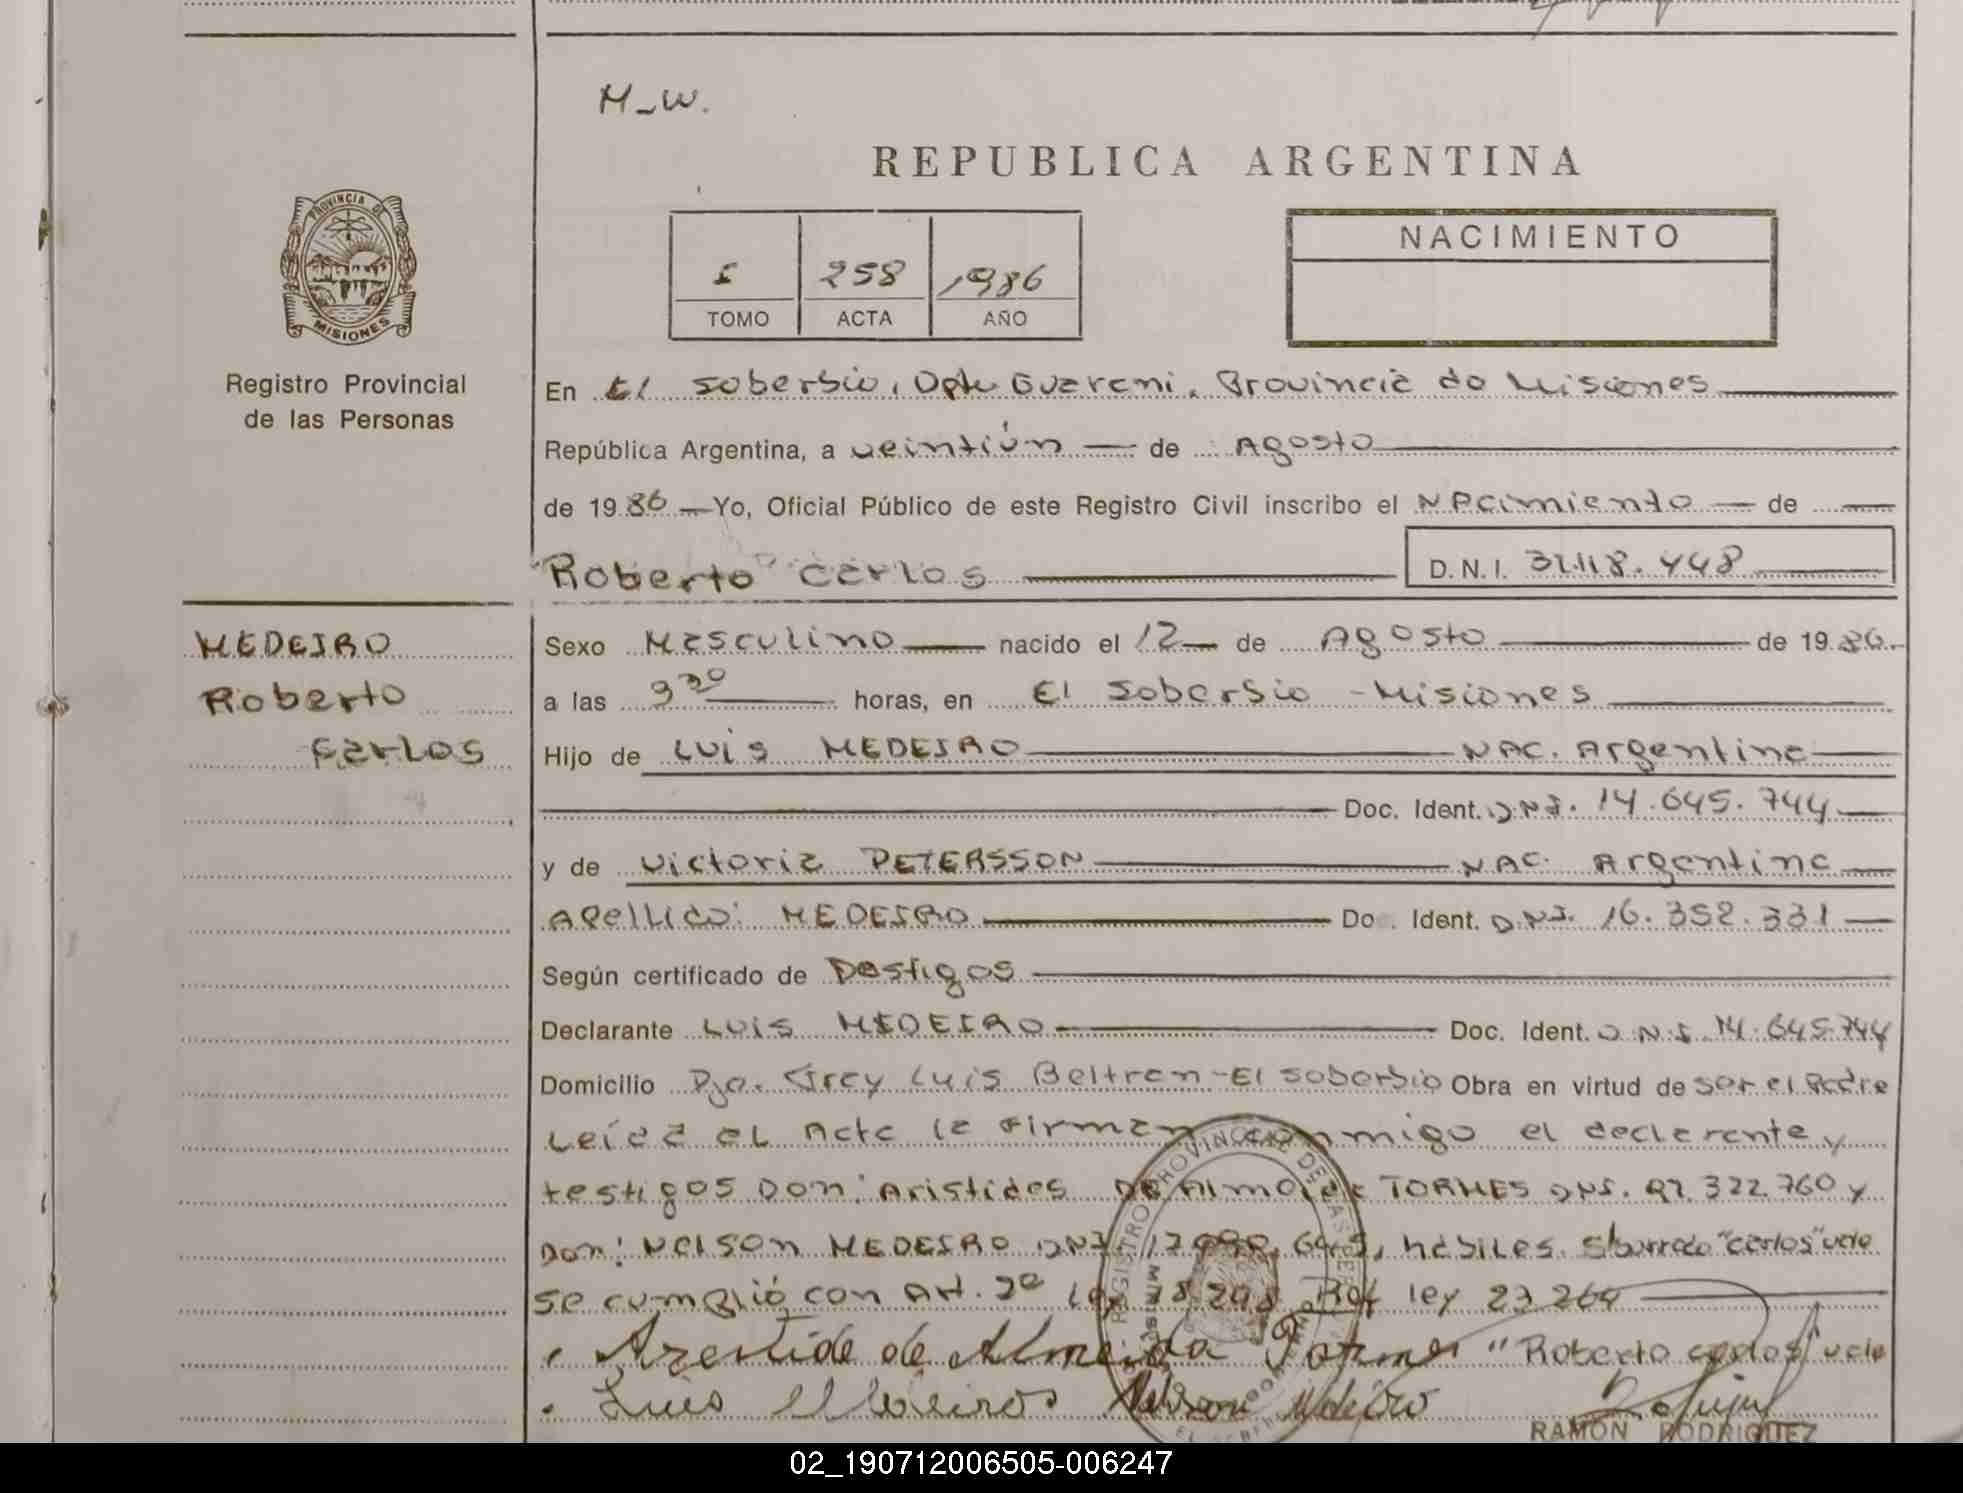 M-W.
REPUBLICA ARGENTINA
PROVINCIA DE
MISIONES
Registro Provincial
de las Personas
I 258 1986
TOMO ACTA AÑO
NACIMIENTO
En El Soberbio, Dpto Guarani, Provincia de Misiones
República Argentina, a veintiún de Agosto
de 1986 Yo, Oficial Público de este Registro Civil inscribo el Nacimiento de
"Roberto" Carlos D.N.I. 32.118.448
MEDEIRO
Roberto
Carlos
Sexo Masculino nacido el 12 de Agosto de 1986.
a las 9 30 horas, en El Soberbio - Misiones
Hijo de Luis MEDEIRO NAC. Argentina
Doc. Ident. D.N.I. 14.645.744
y de Victoria PETERSSON NAC. Argentina
Apellido: MEDEIRO Doc. Ident. D.N.I. 16.352.331
Según certificado de Testigos
Declarante Luis MEDEIRO Doc. Ident. D.N.I. 14.645.744
Domicilio Pje. Frey Luis Beltran - El Soberbio Obra en virtud de ser el Padre
Leída el Acta la firman conmigo el declarante y
testigos Don: Aristides DE Almeida TORMES DNI. 92.322.760 y
Don: Nelson MEDEIRO DNI. hábiles. S/borrado "Carlos" vale
se cumplió con Art. 2º Ley 18.248 Ref ley 23.264
Arestide de Almeida Tormes "Roberto Carlos" vale
Luis Medeiros Nelson Medeiro
RAMÓN RODRIGUEZ
REGISTRO PROVINCIAL DE LAS PER
02_190712006505-006247